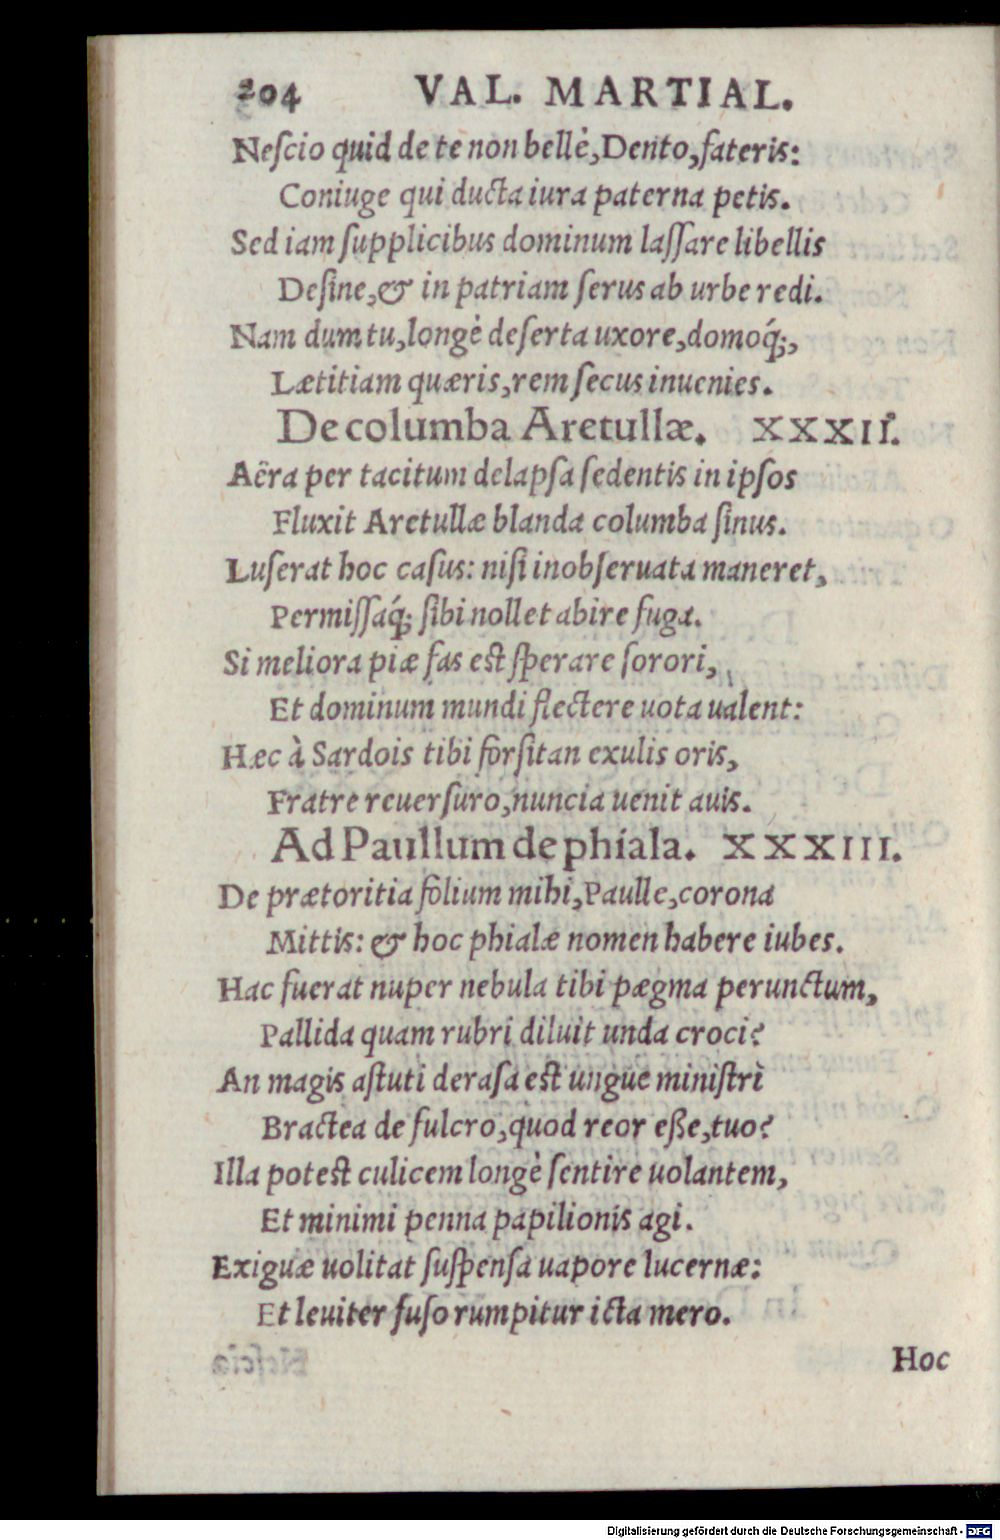 204 VAL. MARTIAL.
Neſcio quid de te non bellè, Dento, fateris:
Coniuge qui ducta iura paterna petis.
Sed iam ſupplicibus dominum laſſare libellis
Deſine, & in patriam ſerus ab urbe redi.
Nam dum tu, longè deſerta uxore, domoq́;,
Lætitiam quæris, rem ſecus inuenies.
De columba Aretullæ. XXXII.
Aëra per tacitum delapſa ſedentis in ipſos
Fluxit Aretullæ blanda columba ſinus.
Luſerat hoc caſus: niſi inobſeruata maneret,
Permiſſaq́; ſibi nollet abire fuga.
Si meliora piæ fas eſt ſperare ſorori,
Et dominum mundi flectere uota ualent:
Hæc à Sardois tibi forſitan exulis oris,
Fratre reuerſuro, nuncia uenit auis.
Ad Paullum de phiala. XXXIII.
De prætoritia folium mihi, Paulle, corona
Mittis: & hoc phialæ nomen habere iubes.
Hac fuerat nuper nebula tibi pægma perunctum,
Pallida quam rubri diluit unda croci?
An magis aſtuti deraſa eſt ungue miniſtri
Bractea de fulcro, quod reor eße, tuo?
Illa poteſt culicem longè ſentire uolantem,
Et minimi penna papilionis agi.
Exiguæ uolitat ſuſpenſa uapore lucernæ:
Et leuiter fuſo rumpitur icta mero.
Hoc
Digitalisierung gefördert durch die Deutsche Forschungsgemeinschaft - DFG